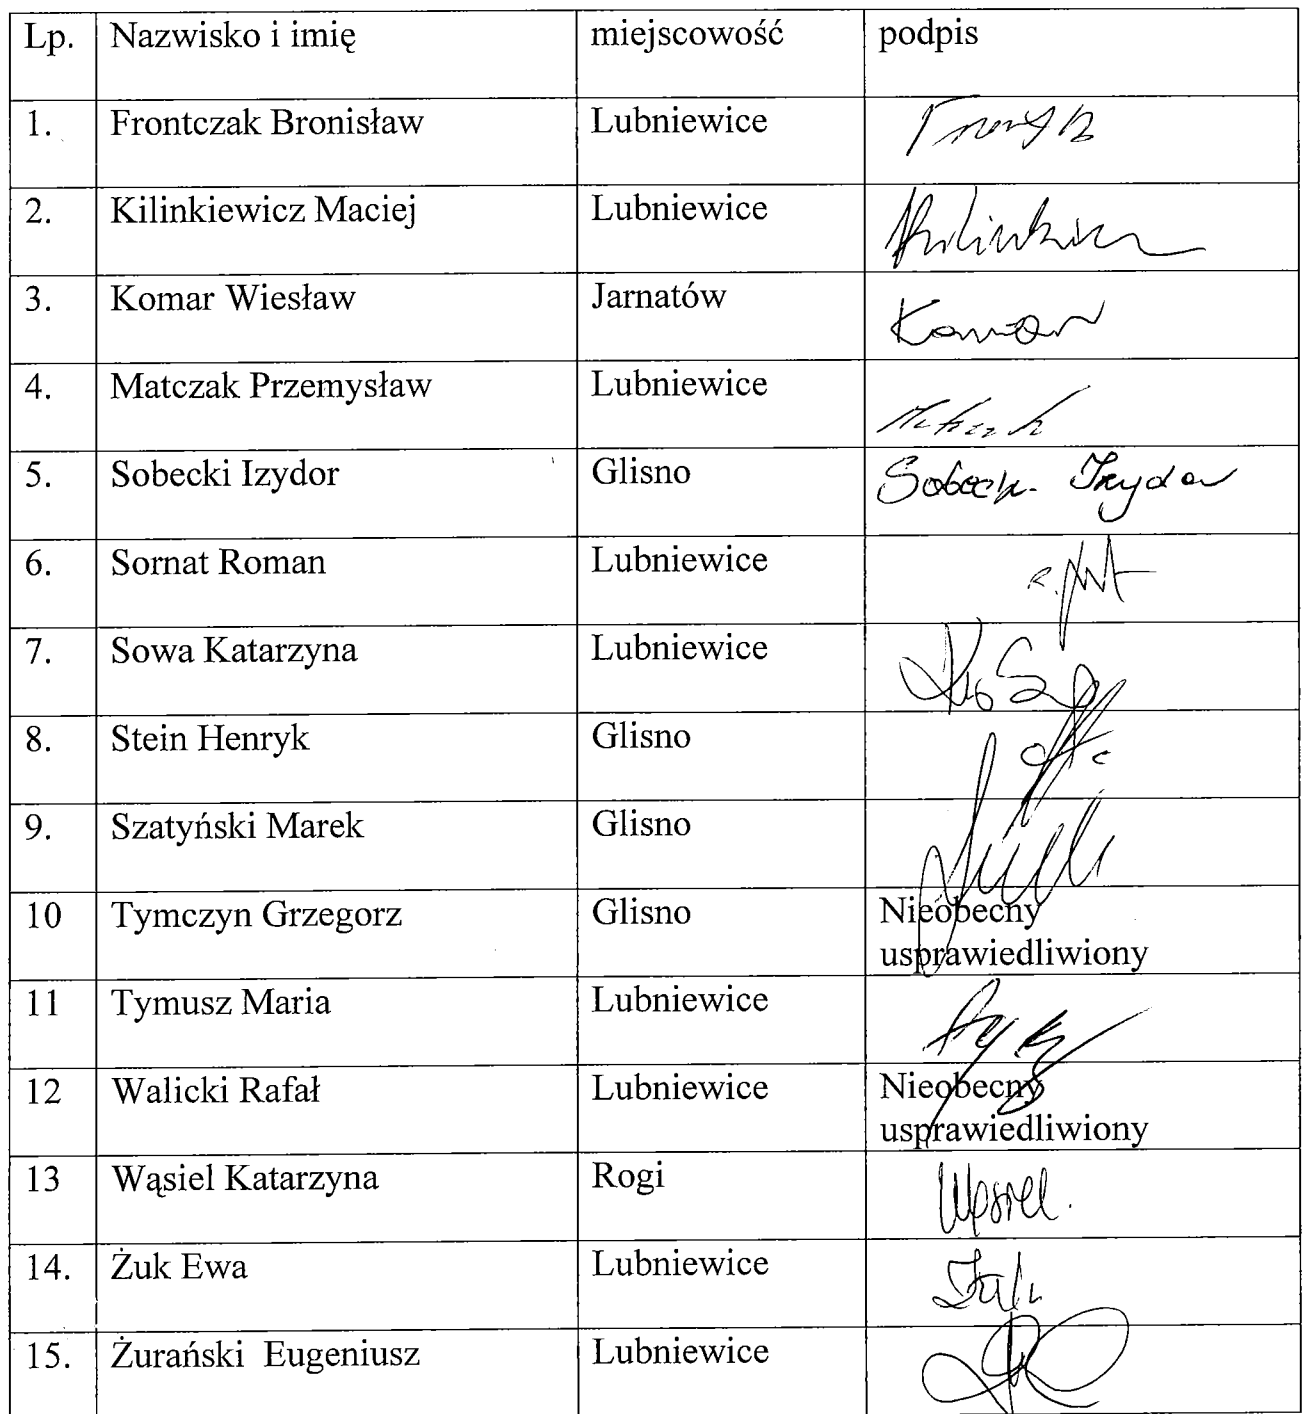 Lp. Nazwisko i imię miejscowość podpis
1. Frontczak Bronisław Lubniewice
2. Kilinkiewicz Maciej Lubniewice
3. Komar Wiesław Jarnatów Komar
4. Matczak Przemysław Lubniewice
5. Sobecki Izydor Glisno Sobecki Izydor
6. Sornat Roman Lubniewice
7. Sowa Katarzyna Lubniewice
8. Stein Henryk Glisno
9. Szatyński Marek Glisno
10 Tymczyn Grzegorz Glisno Nieobecny
usprawiedliwiony
11 Tymusz Maria Lubniewice
12 Walicki Rafał Lubniewice Nieobecny
usprawiedliwiony
13 Wąsiel Katarzyna Rogi Wąsiel.
14. Żuk Ewa Lubniewice
15. Żurański Eugeniusz Lubniewice